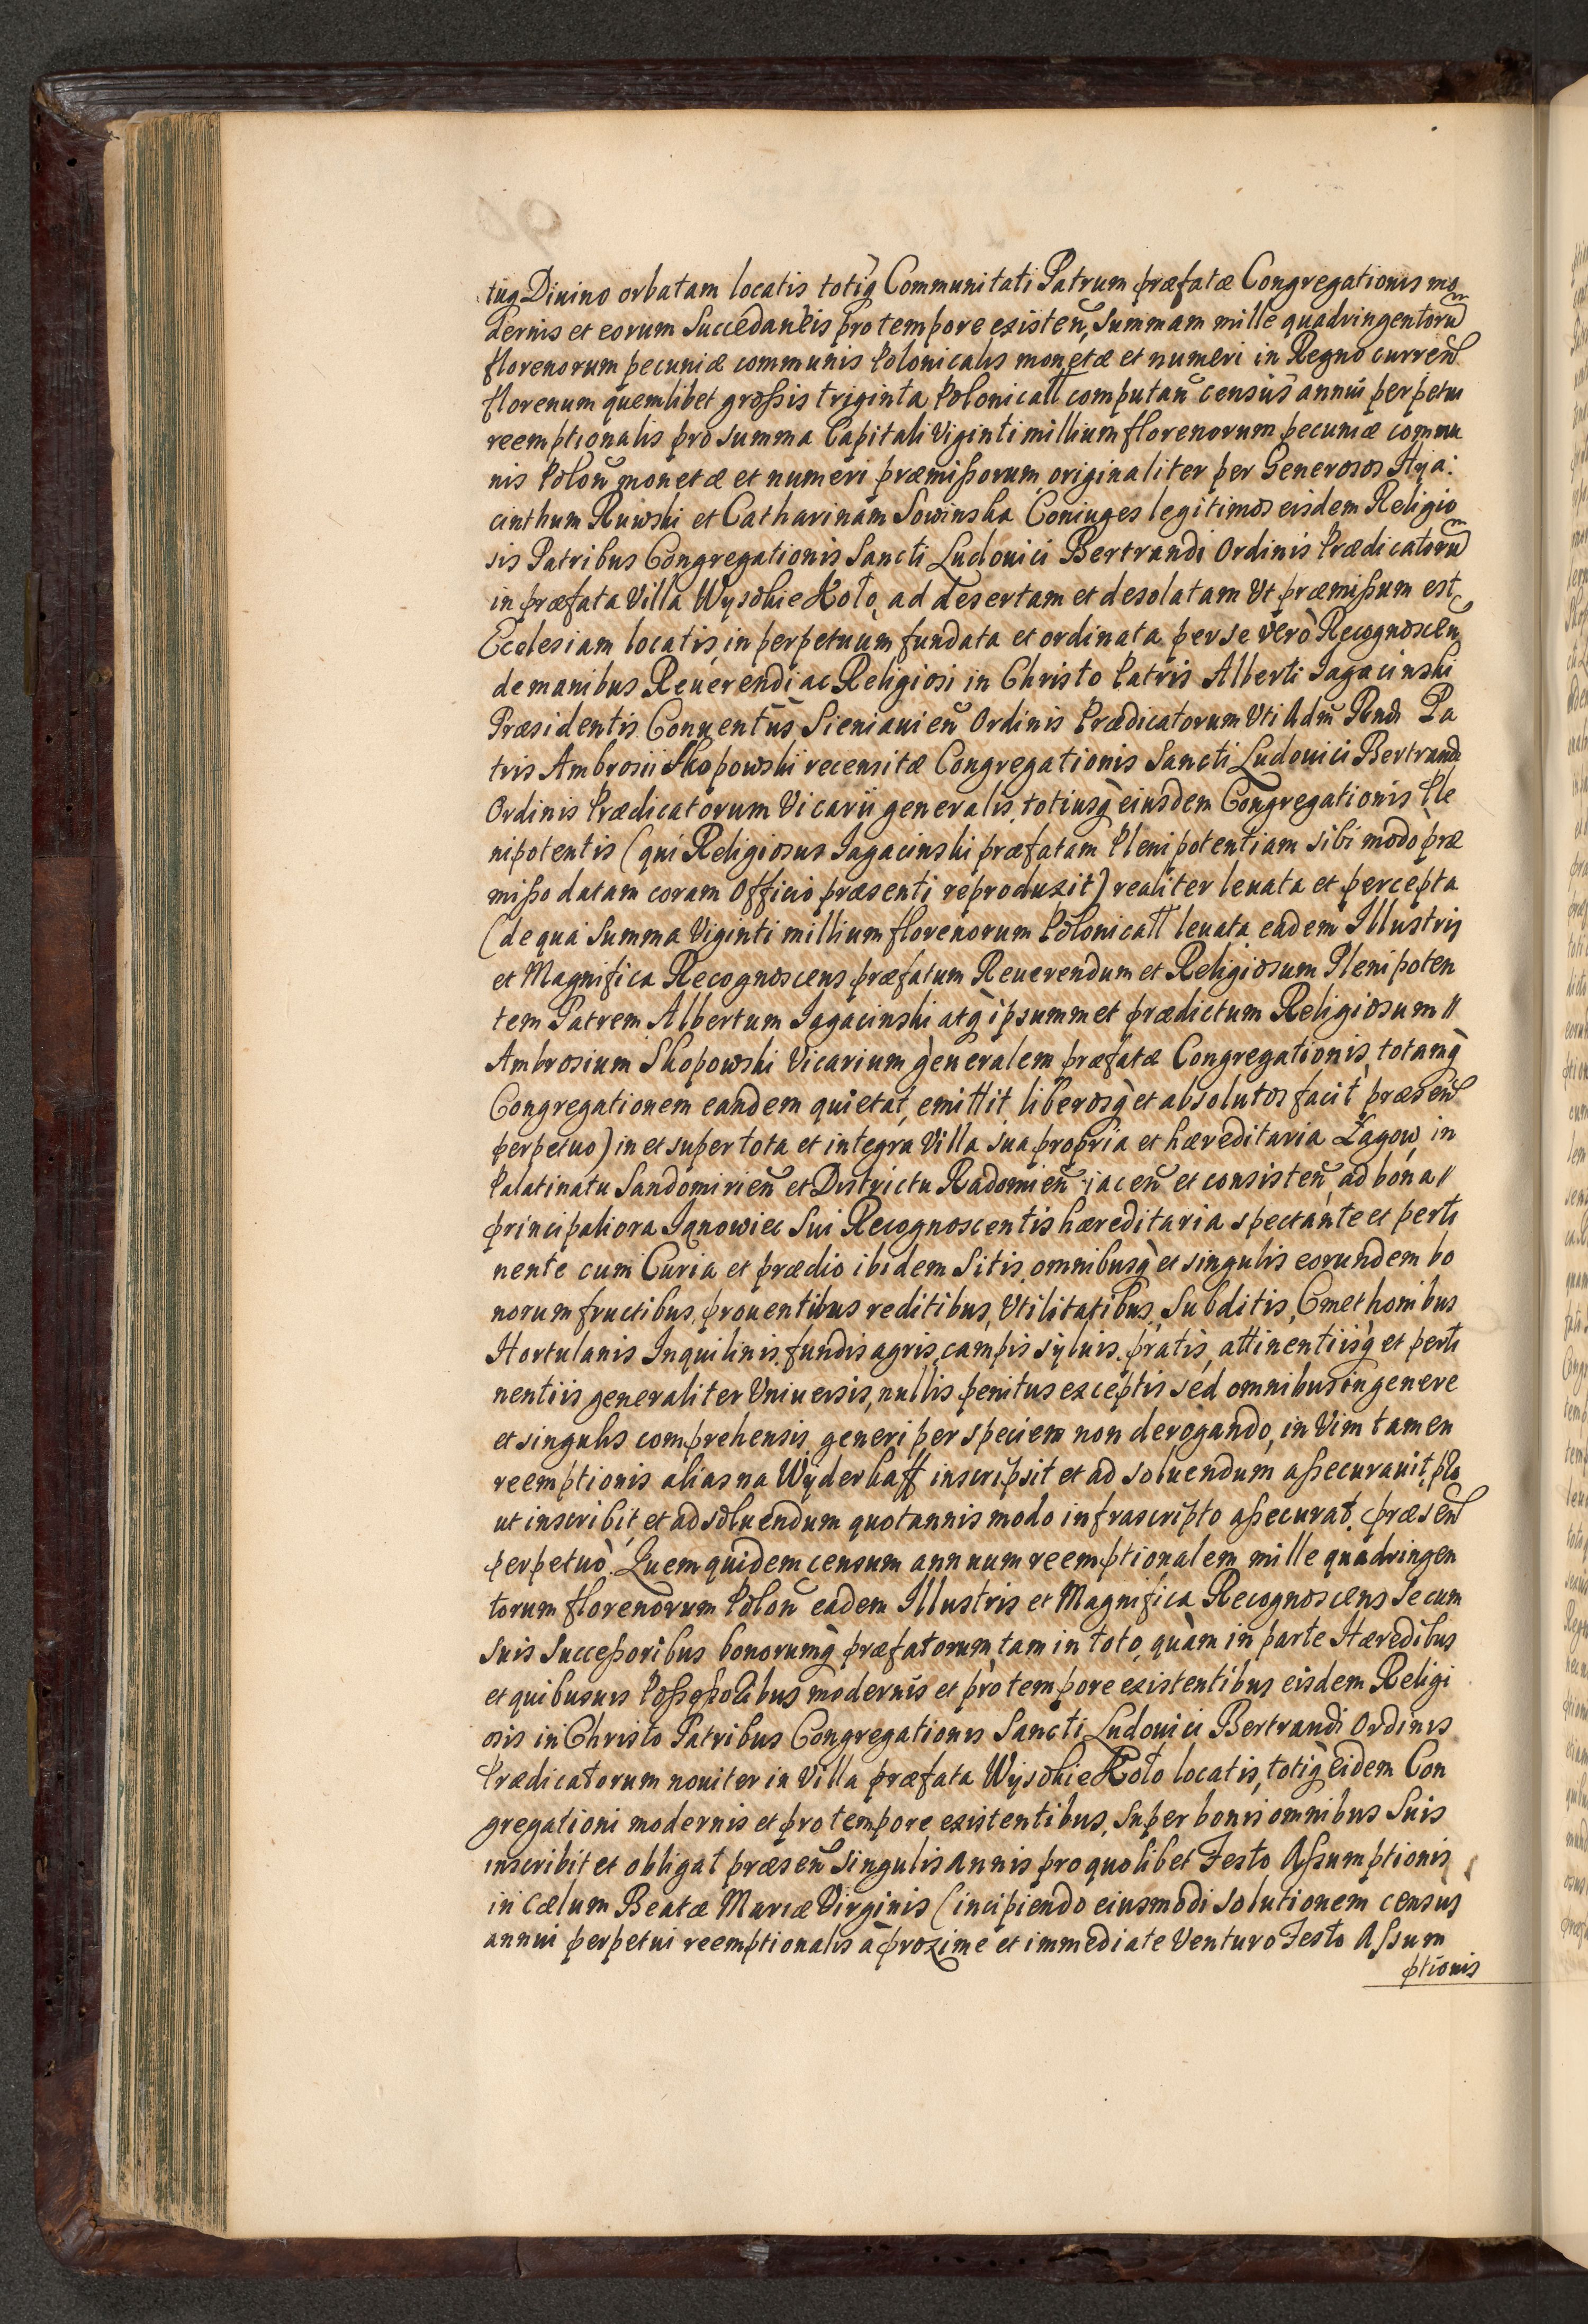 tuq Diuino orbatam locatis totiq̀ Communitati Patrum præfatæ Congregationis mo
dernis et eorum Succedaneis pro tempore existen̄, Summam mille quadringentorum
florenorum pecuniæ communis Polonicalis monetæ et numeri in Regno curren̄
florenum quemlibet grossis triginta Polonicall computan̄ census annui perpetui
reemptionalis pro summa Capitali Viginti millium florenorum pecuniæ commu
nis Polon̄ monetæ et numeri præmissorum originaliter per Generosos Hya:
cinthum Ruwski et Catharinam Sowinska Coniuges legitimos eisdem Religio
sis Patribus Congregationis Sancti Ludouici Bertrandi Ordinis Prædicatorum
in præfata Villa Wysokie Koło, ad desertam et desolatam Vt præmissum est
Ecclesiam locatis, in perpetuum fundata et ordinata per se verò Recognoscen̄
de manibus Reuerendi ac Religiosi in Christo Patris Alberti Jagacinski
Præsidentis Conuentûs Sieniauien̄ Ordinis Prædicatorum Vti Adm̄ Rndi Pa
tris Ambrosii Skopowski recensitæ Congregationis Sancti Ludouici Bertrandi
Ordinis Prædicatorum Vicarii generalis, totiusq̀ eiusdem Congregationis Ple
nipotentis (qui Religiosus Jagacinski præfatam Plenipotentiam sibi modo præ
misso datam coram Officio præsenti reproduxit) realiter leuata et percepta
(de qua Summa Viginti millium florenorum Polonicall leuata eadem Illustris
et Magnifica Recognoscens præfatum Reuerendum et Religiosum Plenipoten
tem Patrem Albertum Jagacinski atq̀ ipsummet prædictum Religiosum //
Ambrosium Skopowski Vicarium generalem præfatæ Congregationis, totamq̀
Congregationem eandem quietat, emittit liberosq̀ et absolutos facit præsen̄
perpetuo) in et super tota et integra Villa sua propria et hæreditaria Zagow, in
Palatinatu Sandomirien̄ et Districtu Radomien̄ iacen̄ et consisten̄, ad bona //
principaliora Janowiec Sui Recognoscentis hæreditaria spectante et perti
nente cum Curia et prædio ibidem Sitis, omnibusq̀ et singulis eorundem bo
norum fructibus, prouentibus reditibus, Vtilitatibus, Subditis, Cmethonibus
Hortulanis Inquilinis, fundis agris, campis syluis, pratis, attinentiisq̀ et perti
nentiis generaliter Vniuersis, nullis penitus exceptis sed omnibus in genere
et singulis comprehensis, generi per speciem non derogando, in Vim tamen
reemptionis alias na Wyderkaff inscripsit et ad soluendum assecurauit, pło
ut inscribit, et ad soluendum quotannis modo infrascripto assecurat, præsen̄
perpetuò. Quem quidem censum annuum reemptionalem mille quadringen
torum florenorum Polon̄ eadem Illustris et Magnifica Recognoscens Secum
suis Successoribus bonorumq̀ præfatorum, tam in toto, quàm in parte Hæredibus
et quibusuis Possessoribus modernis et pro tempore existentibus eisdem Religi
osis in Christo Patribus Congregationis Sancti Ludouici Bertrandi Ordinis
Prædicatorum nouiter in Villa præfata Wysokie Koło locatis, totiq̀ eidem Con
gregationi modernis et pro tempore existentibus, super bonis omnibus Suis
inscribit et obligat præsen̄ Singulis Annis pro quolibet Festo Assumptionis
in Cælum Beatæ Mariæ Virginis (incipiendo eiusmodi solutionem census
annui perpetui reemptionalis à proxime et immediate Venturo Festo Assum
ptionis